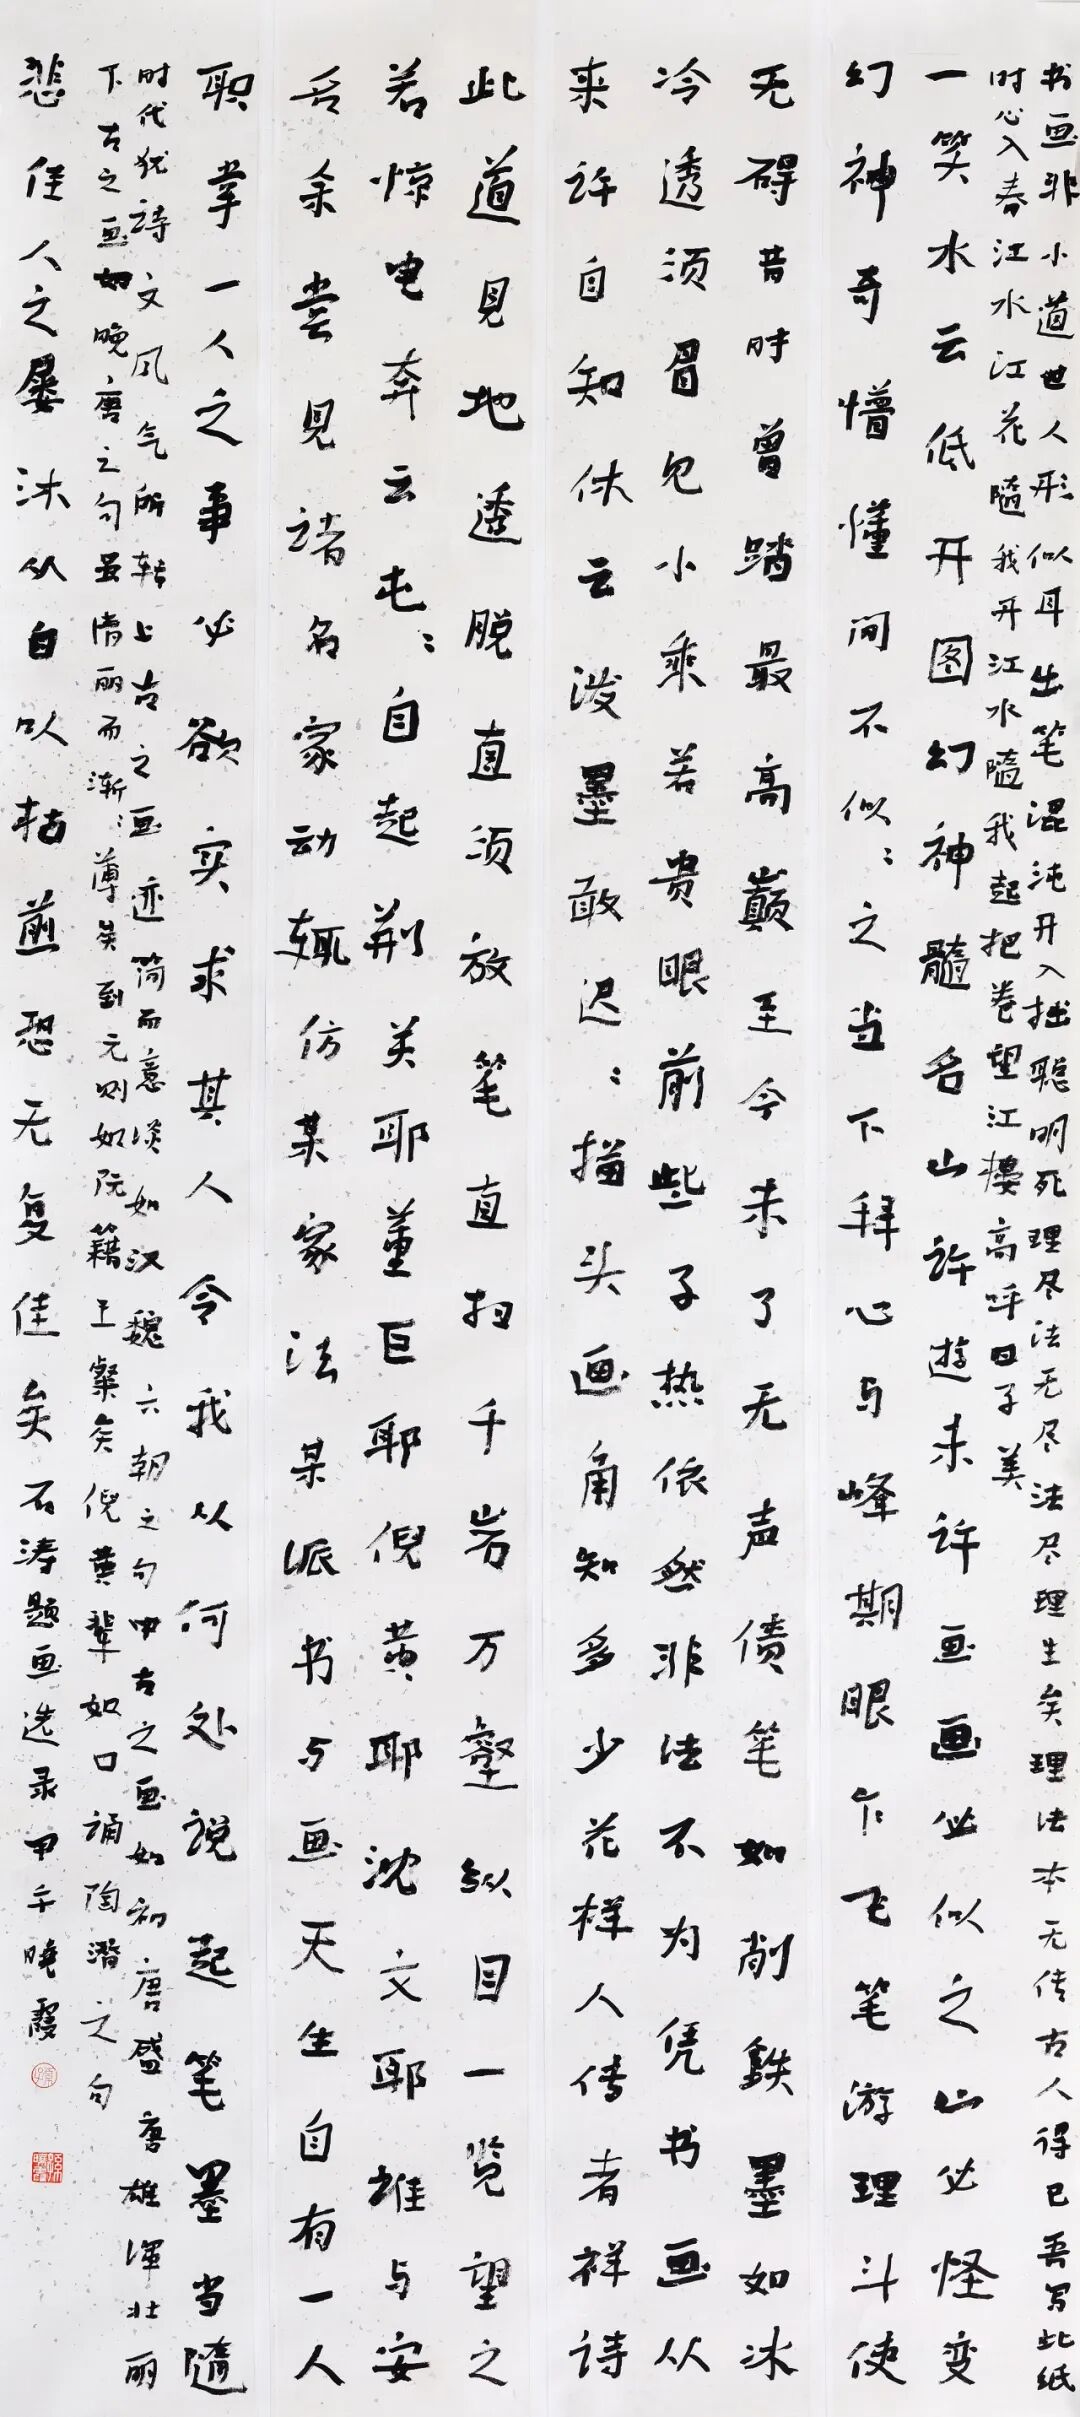 书画非小道世人形似耳出笔混沌开入拙聪明死理尽法无尽法尽理生矣理法本无传古人得已吾写此纸
时心入春江水江花随我开江水随我起把卷望江楼高呼曰子美
一笑水云低开图幻神髓名山许游未许画画必似之山必怪变
幻神奇懵懂间不似似之当下拜心与峰期眼乍飞笔游理斗使
无碍昔时曾踏最高巅至今未了无声债笔如削铁墨如冰
冷透须眉见小乘若贵眼前些子热依然非法不为凭书画从
来许自知休云泼墨敢迟迟描头画角知多少花样人传者祥诗
此道见地透脱直须放笔直扫千岩万壑纵目一览望之
若惊电奔云屯屯自起荆关耶董巨耶倪黄耶沈文耶谁与安
名余尝见诸名家动辄仿某家法某派书与画天生自有一人
职掌一人之事必欲实求其人令我从何处说起笔墨当随
时代犹诗文风气所转上古之画迹简而意淡如汉魏六朝之句中古之画如初唐盛唐雄浑壮丽
下古之画如晚唐之句虽清丽而渐渐薄矣到元则如阮籍王粲矣倪黄辈如口诵陶潜之句
悲佳人之屡沐从白以枯煎恐无复佳矣石涛题画选录甲午晓霞